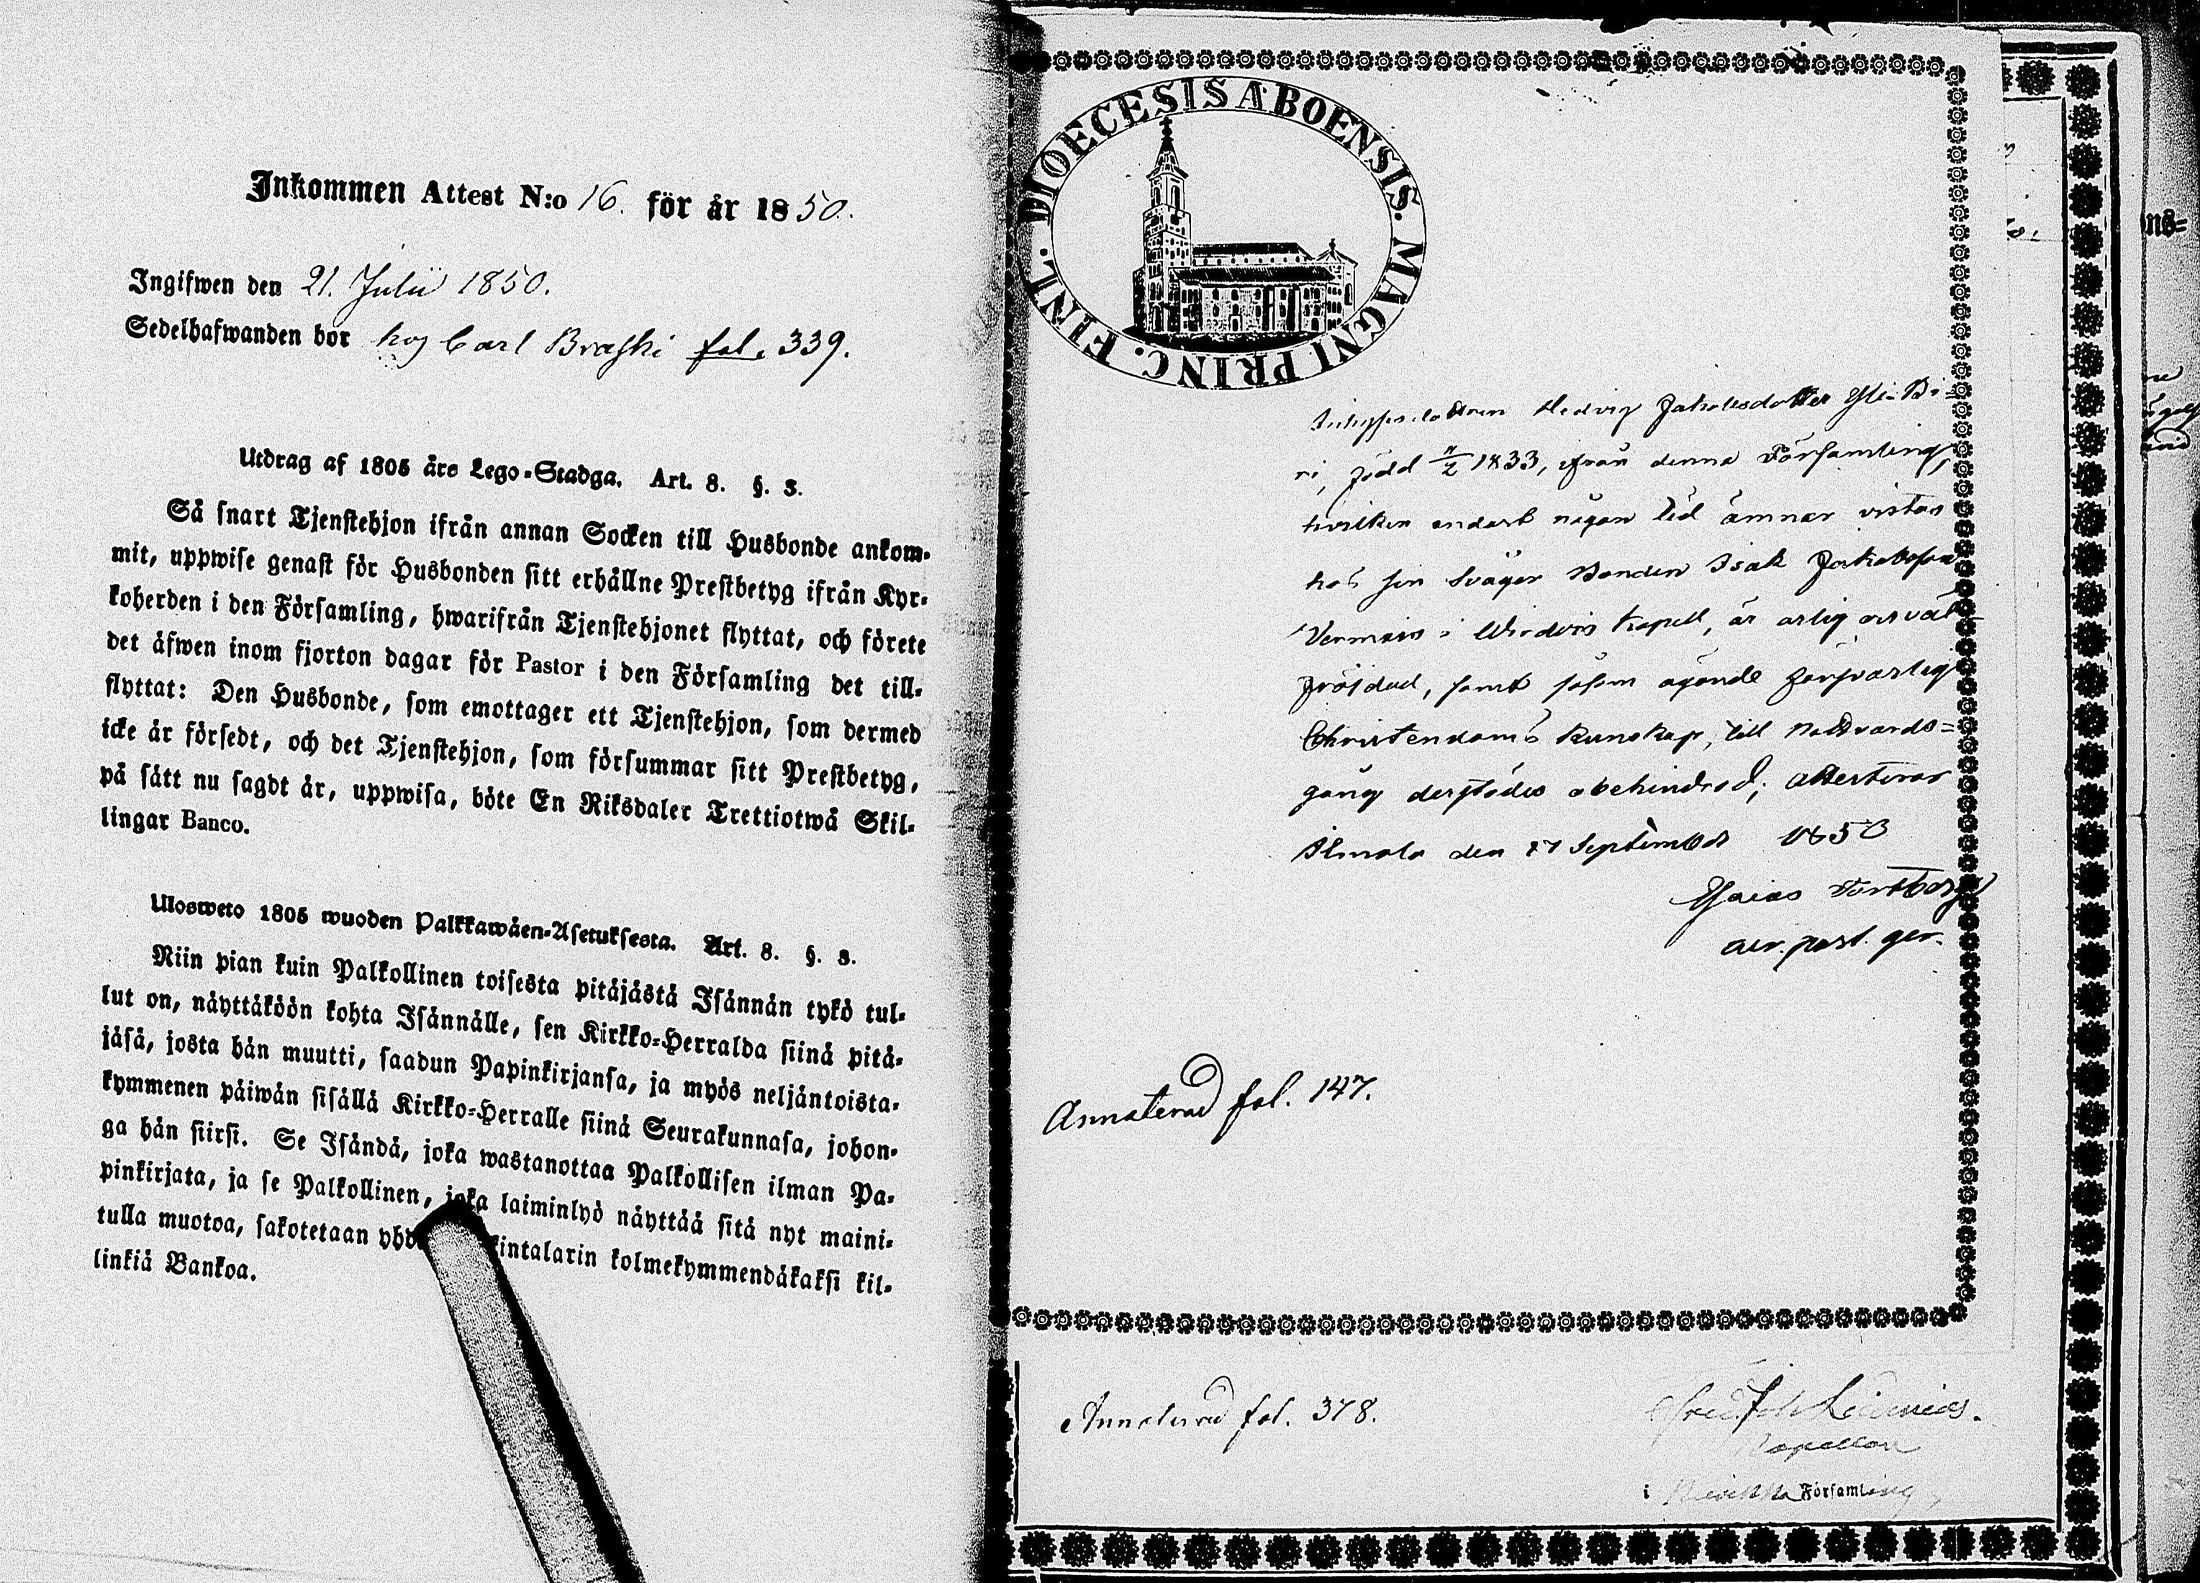 Inkommen Attest N:o 16. för år 1850.
Ingifwen den 21. Julii 1850.
Sedelhafwanden bor hos Carl Braski fol. 339.
Utdrag af 1805 års Lego-Stadga. Art. 8. §. 3.
Så snart Tjenstehjon ifrån annan Socken till Husbonde ankom-
mit, uppwise genast för Husbonden sitt erhållne Prestbetyg ifrån Kyr-
koherden i den Församling, hwarifrån Tjenstehjonet flyttat, och förete
det äfwen inom fjorton dagar för Pastor i den Församling det till-
flyttat: Den Husbonde, som emottager ett Tjenstehjon, som dermed
icke är försedt, och det Tjenstehjon, som försummar sitt Prestbetyg,
på sätt nu sagdt är, uppwisa, böte En Riksdaler Trettiotwå Skil-
lingar Banco.
Ulosweto 1805 wuoden Palkkawäen-Asetuksesta. Art. 8. §. 3.
Niin pian kuin Palkollinen toisesta pitäjästä Isännän tykö tul-
lut on, näyttäköön kohta Isännälle, sen Kirkko-Herralda siinä pitä-
jäsä, josta hän muutti, saadun Papinkirjansa, ja myös neljäntoista-
kymmenen päiwän sisällä Kirkko-Herralle siinä Seurakunnasa, johon-
ga hän siirsi. Se Isändä, joka wastanottaa Palkollisen ilman Pa-
pinkirjata, ja se Palkollinen, joka laiminlyö näyttää sitä nyt maini-
tulla muotoa, sakotetaan kintalarin kolmekymmendäkaksi kil-
linkiä Bankoa.
DIOECESIS ABOENSIS. MAGNI PRINC. FINL.
Hedvig Jakobsdotter Yli-Bi-
ri, född 1833, ifrån denna Församling,
hvilken endast någon tid ämnar vistas
hos sin Svåger Bonden Isak Jakobsson
i Virdois Kapell, är ärlig och väl-
frejdad, samt såsom ägande försvarlig
Christendoms kunskap, till Nattvards-
gång derstädes obehindrad; attesterar
Ilmola den 17 September 1850
Esaias
past.
Annoterad fol. 147.
Annoterad fol. 378.
Kapellan
i Församling